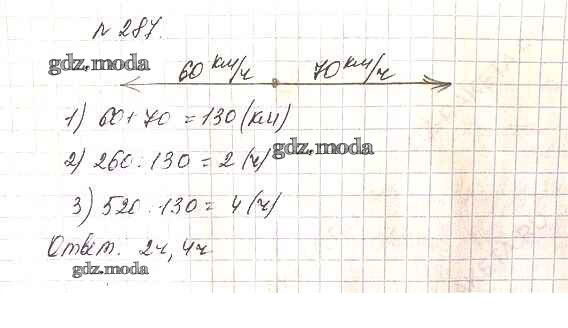 № 287.
gdz.moda
60 км/ч 70 км/ч
1) 60+70 = 130 (км)
gdz.moda
2) 260 : 130 = 2 (ч)
3) 520 : 130 = 4 (ч)
Ответ. 2ч, 4ч
gdz.moda